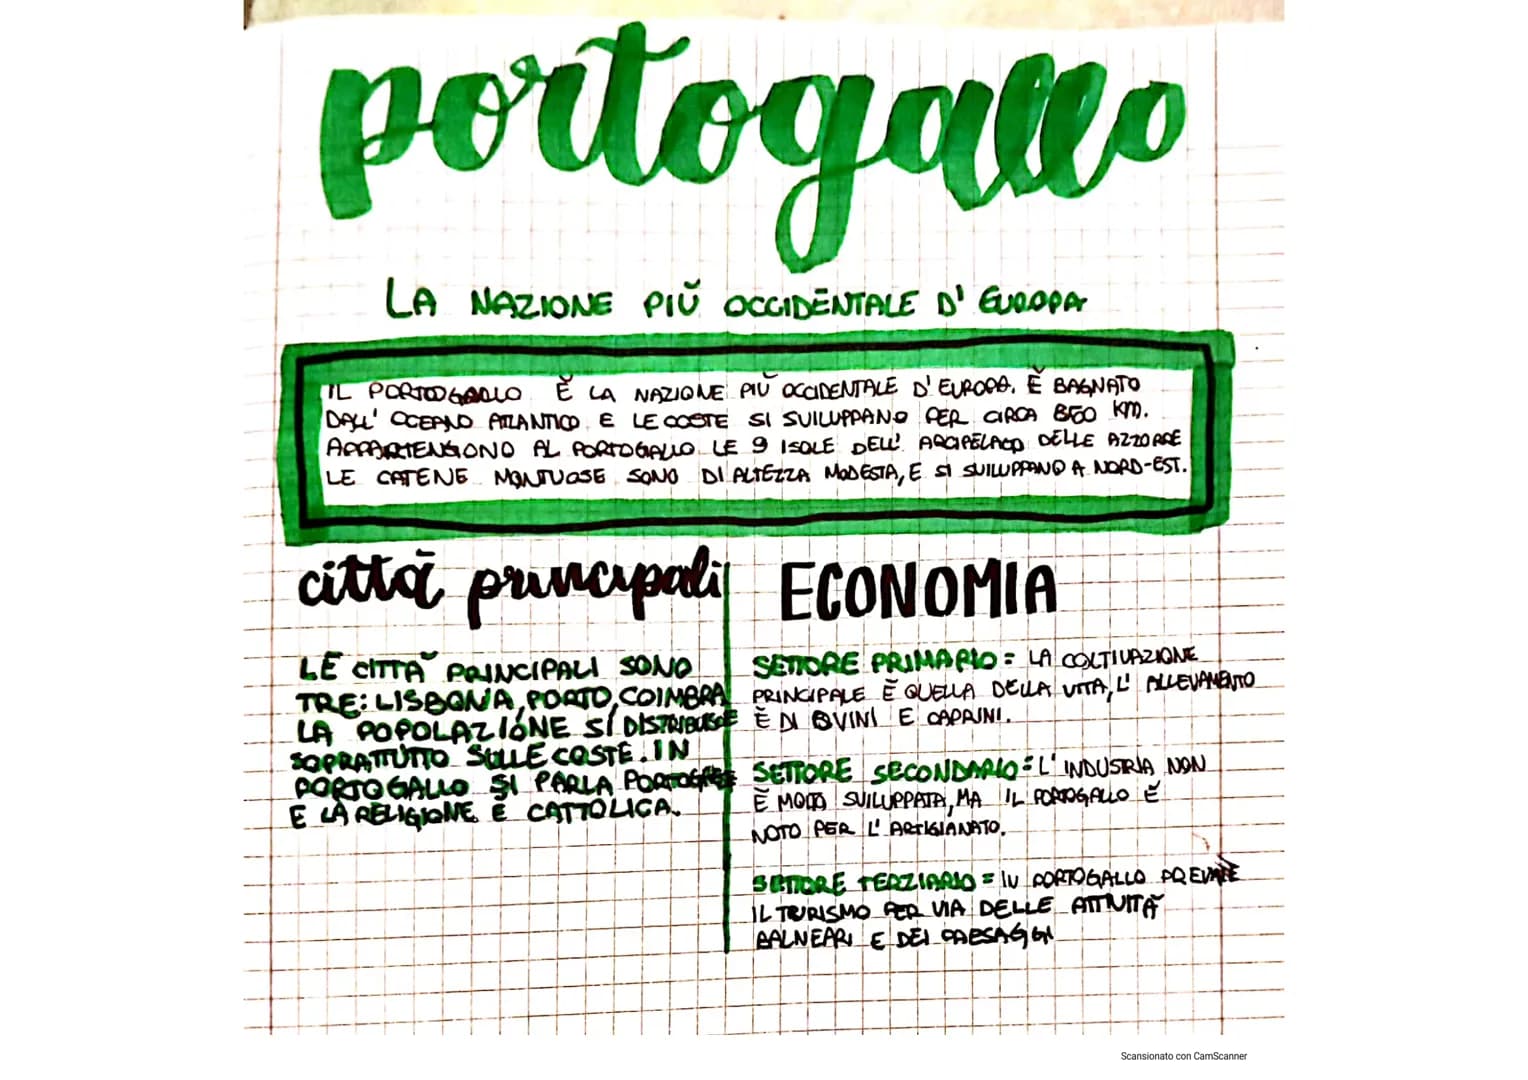 portogallo
LA NAZIONE PIÙ OCCIDENTALE D'EUROPA
IL PORTOGALLO È LA NAZIONE PIÙ OCCIDENTALE D'EUROPA. È BAGNATO
DALL'OCEANO ATLANTICO E LE COSTE SI SVILUPPANO PER CIRCA 850 KM.
APPARTENGONO AL PORTOGALLO LE 9 ISOLE DELL'ARCIPELAGO DELLE AZZORRE
LE CATENE MONTUOSE SONO DI ALTEZZA MODESTA, E SI SVILUPPANO A NORD-EST.
città principali
LE CITTÀ PRINCIPALI SONO
TRE: LISBONA, PORTO, COIMBRA
LA POPOLAZIONE SI DISTRIBUISCE
SOPRATTUTTO SULLE COSTE. IN
PORTOGALLO SI PARLA PORTOGHESE
E LA RELIGIONE È CATTOLICA.
ECONOMIA
SETTORE PRIMARIO = LA COLTIVAZIONE
PRINCIPALE È QUELLA DELLA VITA, L'ALLEVAMENTO
È DI OVINI E CAPRINI.
SETTORE SECONDARIO = L'INDUSTRIA NON
È MOLTO SVILUPPATA, MA IL PORTOGALLO È
NOTO PER L'ARTIGIANATO.
SETTORE TERZIARIO = IN PORTOGALLO PREVALE
IL TURISMO PER VIA DELLE ATTIVITÀ
BALNEARI E DEI PAESAGGI
Scansionato con CamScanner